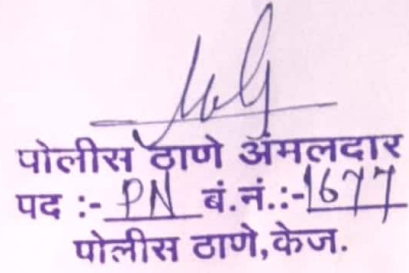 पोलीस ठाणे अंमलदार
पद :- PN बं.नं.:- 1677
पोलीस ठाणे,केज.